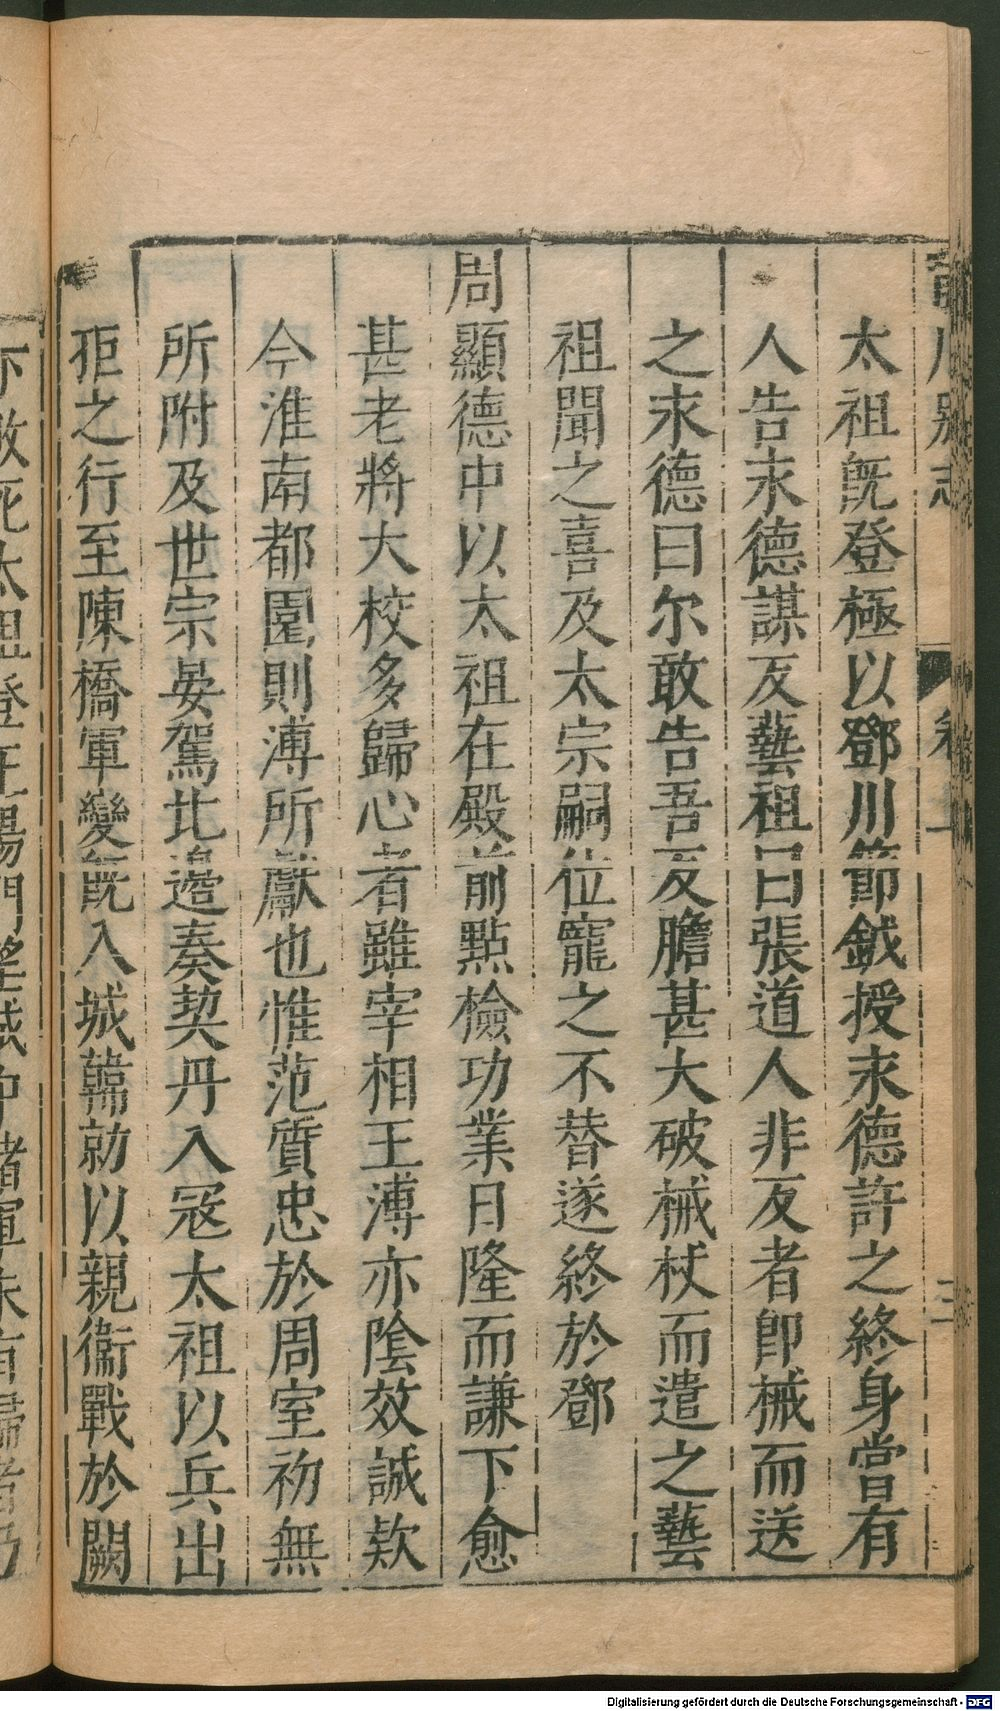 太祖旣登極以鄧川節鉞授永德許之終身嘗有
人告永德謀反藝祖曰張道人非反者卽械而送
之永德曰尔敢告吾反膽甚大破械杖而遣之藝
祖聞之喜及太宗嗣位寵之不替遂終於鄧
周顯德中以太祖在殿前點檢功業日隆而謙下愈
甚老將大校多歸心者雖宰相王溥亦陰效誠欵
今淮南都園則溥所獻也惟范質忠於周室初無
所附及世宗晏駕北邉奏契丹入冦太祖以兵出
拒之行至陳橋軍變旣入城韓勍以親衞戰於闕
Digitalisierung gefördert durch die Deutsche Forschungsgemeinschaft - DFG